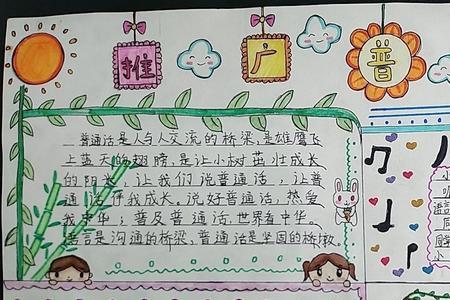 推广普
普通话是人与人交流的桥梁,是雄鹰飞
上蓝天的翅膀,是让小树茁壮成长
的阳光,让我们说普通话,让普
通话伴我成长。说好普通话,热爱
我中华;普及普通话,世界看中华。
语言是沟通的桥梁,普通话是坚固的桥墩